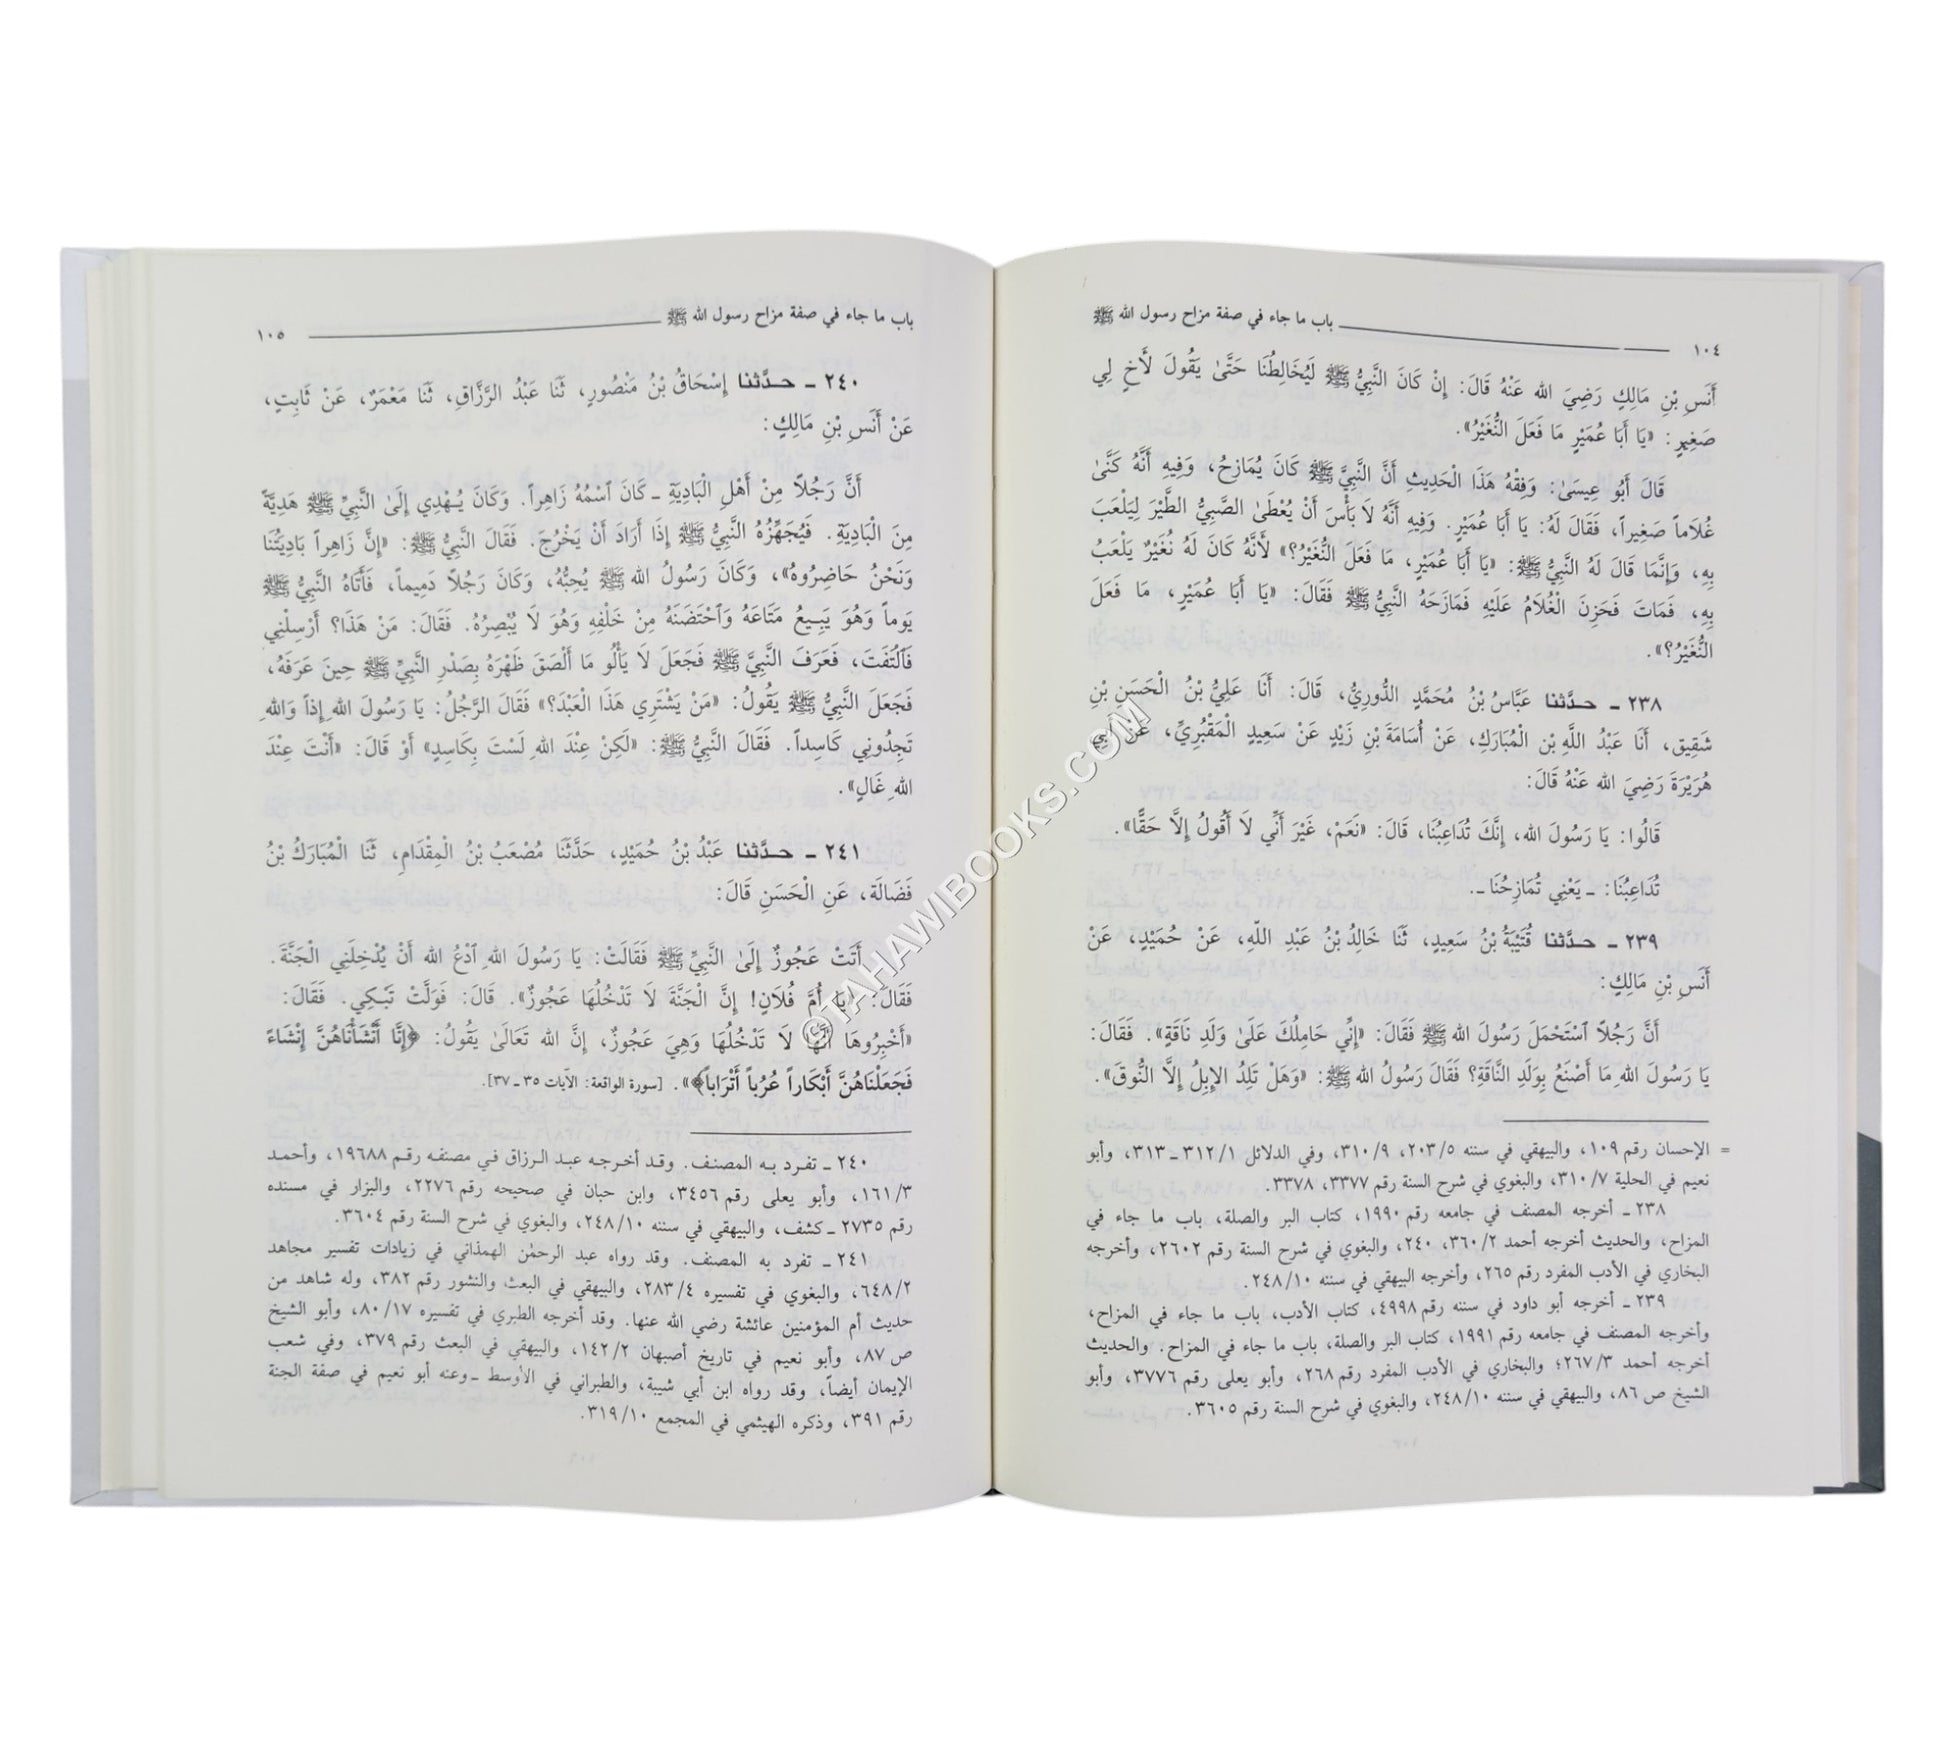 ١٠٤ باب ما جاء في صفة مزاح رسول الله ﷺ
أَنَسِ بْنِ مَالِكٍ رَضِيَ الله عَنْهُ قَالَ: إِنْ كَانَ النَّبِيُّ ﷺ لَيُخَالِطُنَا حَتَّىٰ يَقُولَ لأَخٍ لِي
صَغِيرٍ: «يَا أَبَا عُمَيْرٍ مَا فَعَلَ النُّغَيْرُ».
قَالَ أَبُو عِيسَىٰ: وَفِقْهُ هَذَا الْحَدِيثِ أَنَّ النَّبِيَّ ﷺ كَانَ يُمَازِحُ، وَفِيهِ أَنَّهُ كَنَّىٰ
غُلَاماً صَغِيراً، فَقَالَ لَهُ: يَا أَبَا عُمَيْرٍ. وَفِيهِ أَنَّهُ لَا بَأْسَ أَنْ يُعْطَىٰ الصَّبِيُّ الطَّيْرَ لِيَلْعَبَ
بِهِ، وَإِنَّمَا قَالَ لَهُ النَّبِيُّ ﷺ: «يَا أَبَا عُمَيْرٍ، مَا فَعَلَ النُّغَيْرُ؟» لأَنَّهُ كَانَ لَهُ نُغَيْرٌ يَلْعَبُ
بِهِ، فَمَاتَ فَحَزِنَ الْغُلَامُ عَلَيْهِ فَمَازَحَهُ النَّبِيُّ ﷺ فَقَالَ: «يَا أَبَا عُمَيْرٍ، مَا فَعَلَ
النُّغَيْرُ؟».
٢٣٨ ـ حدَّثنا عَبَّاسُ بْنُ مُحَمَّدٍ الدُّورِيُّ، قَالَ: أَنَا عَلِيُّ بْنُ الْحَسَنِ بْنِ
شَقِيقٍ، أَنَا عَبْدُ اللَّهِ بْن الْمُبَارَكِ، عَنْ أُسَامَةَ بْنِ زَيْدٍ عَنْ سَعِيدٍ الْمَقْبُرِيِّ، عَنْ أَبِي
هُرَيْرَةَ رَضِيَ الله عَنْهُ قَالَ:
قَالُوا: يَا رَسُولَ الله، إِنَّكَ تُدَاعِبُنَا، قَالَ: «نَعَمْ، غَيْرَ أَنِّي لَا أَقُولُ إِلَّا حَقًّا».
تُدَاعِبُنَا: ـ يَعْنِي تُمَازِحُنَا ـ.
٢٣٩ ـ حدَّثنا قُتَيْبَةُ بْنُ سَعِيدٍ، ثَنَا خَالِدُ بْنُ عَبْدِ اللّهِ، عَنْ حُمَيْدٍ، عَنْ
أَنَسِ بْنِ مَالِكٍ:
أَنَّ رَجُلاً ٱسْتَحْمَلَ رَسُولَ الله ﷺ فَقَالَ: «إِنِّي حَامِلُكَ عَلَىٰ وَلَدِ نَاقَةٍ». فَقَالَ:
يَا رَسُولَ اللهِ مَا أَصْنَعُ بِوَلَدِ النَّاقَةِ؟ فَقَالَ رَسُولُ الله ﷺ: «وَهَلْ تَلِدُ الإِبِلُ إِلَّا النُّوقَ».
= الإحسان رقم ١٠٩، والبيهقي في سننه ٢٠٣/٥، ٣١٠/٩، وفي الدلائل ٣١٢/١ ـ ٣١٣، وأبو
نعيم في الحلية ٣١٠/٧، والبغوي في شرح السنة رقم ٣٣٧٧، ٣٣٧٨.
٢٣٨ ـ أخرجه المصنف في جامعه رقم ١٩٩٠، كتاب البر والصلة، باب ما جاء في
المزاح، والحديث أخرجه أحمد ٣٦٠/٢، ٢٤٠، والبغوي في شرح السنة رقم ٢٦٠٢، وأخرجه
البخاري في الأدب المفرد رقم ٢٦٥، وأخرجه البيهقي في سننه ٢٤٨/١٠.
٢٣٩ ـ أخرجه أبو داود في سننه رقم ٤٩٩٨، كتاب الأدب، باب ما جاء في المزاح،
وأخرجه المصنف في جامعه رقم ١٩٩١، كتاب البر والصلة، باب ما جاء في المزاح. والحديث
أخرجه أحمد ٢٦٧/٣؛ والبخاري في الأدب المفرد رقم ٢٦٨، وأبو يعلى رقم ٣٧٧٦، وأبو
الشيخ ص ٨٦، والبيهقي في سننه ٢٤٨/١٠، والبغوي في شرح السنة رقم ٣٦٠٥.
باب ما جاء في صفة مزاح رسول الله ﷺ ١٠٥
٢٤٠ ـ حدَّثنا إِسْحَاقُ بْنُ مَنْصُورٍ، ثَنَا عَبْدُ الرَّزَّاقِ، ثَنَا مَعْمَرٌ، عَنْ ثَابِتٍ،
عَنْ أَنَسِ بْنِ مَالِكٍ:
أَنَّ رَجُلاً مِنْ أَهْلِ الْبَادِيَةِ ـ كَانَ ٱسْمُهُ زَاهِراً. وَكَانَ يُهْدِي إِلَىٰ النَّبِيِّ ﷺ هَدِيَّةً
مِنَ الْبَادِيَةِ. فَيُجَهِّزُهُ النَّبِيُّ ﷺ إِذَا أَرَادَ أَنْ يَخْرُجَ. فَقَالَ النَّبِيُّ ﷺ: «إِنَّ زَاهِراً بَادِيَتُنَا
وَنَحْنُ حَاضِرُوهُ»، وَكَانَ رَسُولُ الله ﷺ يُحِبُّهُ، وَكَانَ رَجُلاً دَمِيماً، فَأَتَاهُ النَّبِيُّ ﷺ
يَوماً وَهُوَ يَبِيعُ مَتَاعَهُ وَٱحْتَضَنَهُ مِنْ خَلْفِهِ وَهُوَ لَا يُبْصِرُهُ. فَقَالَ: مَنْ هَذَا؟ أَرْسِلْنِي
فَٱلْتَفَتَ، فَعَرَفَ النَّبِيَّ ﷺ فَجَعَلَ لَا يَأْلُو مَا أَلْصَقَ ظَهْرَهُ بِصَدْرِ النَّبِيِّ ﷺ حِينَ عَرَفَهُ،
فَجَعَلَ النَّبِيُّ ﷺ يَقُولُ: «مَنْ يَشْتَرِي هَذَا الْعَبْدَ؟» فَقَالَ الرَّجُلُ: يَا رَسُولَ اللهِ إِذاً وَاللهِ
تَجِدُونِي كَاسِداً. فَقَالَ النَّبِيُّ ﷺ: «لَكِنْ عِنْدَ اللهِ لَسْتَ بِكَاسِدٍ» أَوْ قَالَ: «أَنْتَ عِنْدَ
اللهِ غَالٍ».
٢٤١ ـ حدَّثنا عَبْدُ بْنُ حُمَيْدٍ، حَدَّثَنَا مُصْعَبُ بْنُ الْمِقْدَامِ، ثَنَا الْمُبَارَكُ بْنُ
فَضَالَةَ، عَنِ الْحَسَنِ قَالَ:
أَتَتْ عَجُوزٌ إِلَىٰ النَّبِيِّ ﷺ فَقَالَتْ: يَا رَسُولَ اللهِ ٱدْعُ الله أَنْ يُدْخِلَنِي الْجَنَّةَ.
فَقَالَ: «يَا أُمَّ فُلَانٍ! إِنَّ الْجَنَّةَ لَا تَدْخُلُهَا عَجُوزٌ». قَالَ: فَوَلَّتْ تَبْكِي. فَقَالَ:
«أَخْبِرُوهَا أَنَّهَا لَا تَدْخُلُهَا وَهِيَ عَجُوزٌ، إِنَّ الله تَعَالَىٰ يَقُولُ: ﴿إِنَّا أَنْشَأْنَاهُنَّ إِنْشَاءً
فَجَعَلْنَاهُنَّ أَبْكَاراً عُرُباً أَتْرَاباً﴾». [سورة الواقعة: الآيات ٣٥ ـ ٣٧].
٢٤٠ ـ تفرد به المصنف. وقد أخرجه عبد الرزاق في مصنفه رقم ١٩٦٨٨، وأحمد
١٦١/٣، وأبو يعلى رقم ٣٤٥٦، وابن حبان في صحيحه رقم ٢٢٧٦، والبزار في مسنده
رقم ٢٧٣٥ ـ كشف، والبيهقي في سننه ٢٤٨/١٠، والبغوي في شرح السنة رقم ٣٦٠٤.
٢٤١ ـ تفرد به المصنف. وقد رواه عبد الرحمٰن الهمذاني في زيادات تفسير مجاهد
٦٤٨/٢، والبغوي في تفسيره ٢٨٣/٤، والبيهقي في البعث والنشور رقم ٣٨٢، وله شاهد من
حديث أم المؤمنين عائشة رضي الله عنها. وقد أخرجه الطبري في تفسيره ٨٠/١٧، وأبو الشيخ
ص ٨٧، وأبو نعيم في تاريخ أصبهان ١٤٢/٢، والبيهقي في البعث رقم ٣٧٩، وفي شعب
الإيمان أيضاً، وقد رواه ابن أبي شيبة، والطبراني في الأوسط ـ وعنه أبو نعيم في صفة الجنة
رقم ٣٩١، وذكره الهيثمي في المجمع ٣١٩/١٠.
©TAHAWIBOOKS.COM